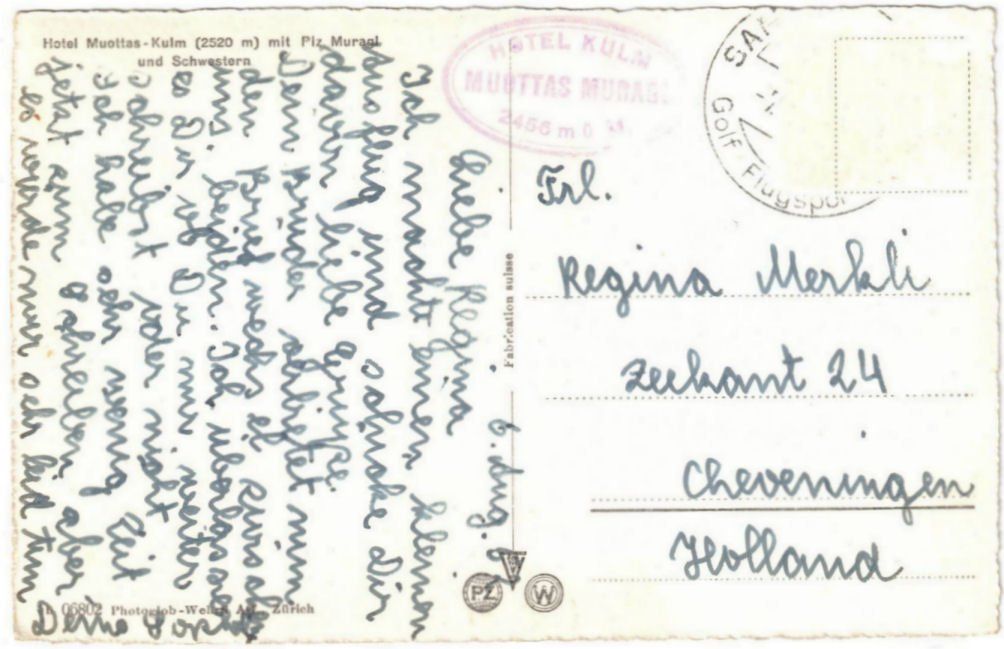 Hotel Muottas-Kulm (2520 m) mit Piz Muragl
und Schwestern
HOTEL KULM
MUOTTAS MURAGL
2456 m ü. M.
SAM
Golf Flugspor
6. Aug.
Liebe Regina
Ich macht einen kleinen
Ausflug und schicke Dir
davon liebe Grüsse.
Dein Bruder arbeitet nun
den Brief zwischen
uns beiden. Ich überlasse
es Dir ob Du mir weiter
schreibst oder nicht.
Ich habe sehr wenig Zeit
jetzt zum schreiben aber
es würde mir sehr leid tun
Deine
Fabrication suisse
Frl.
Regina Merkli
Zeekant 24
Cheveningen
Holland
PZ
W
06802 Photoglob-Wehrli A.G., Zürich